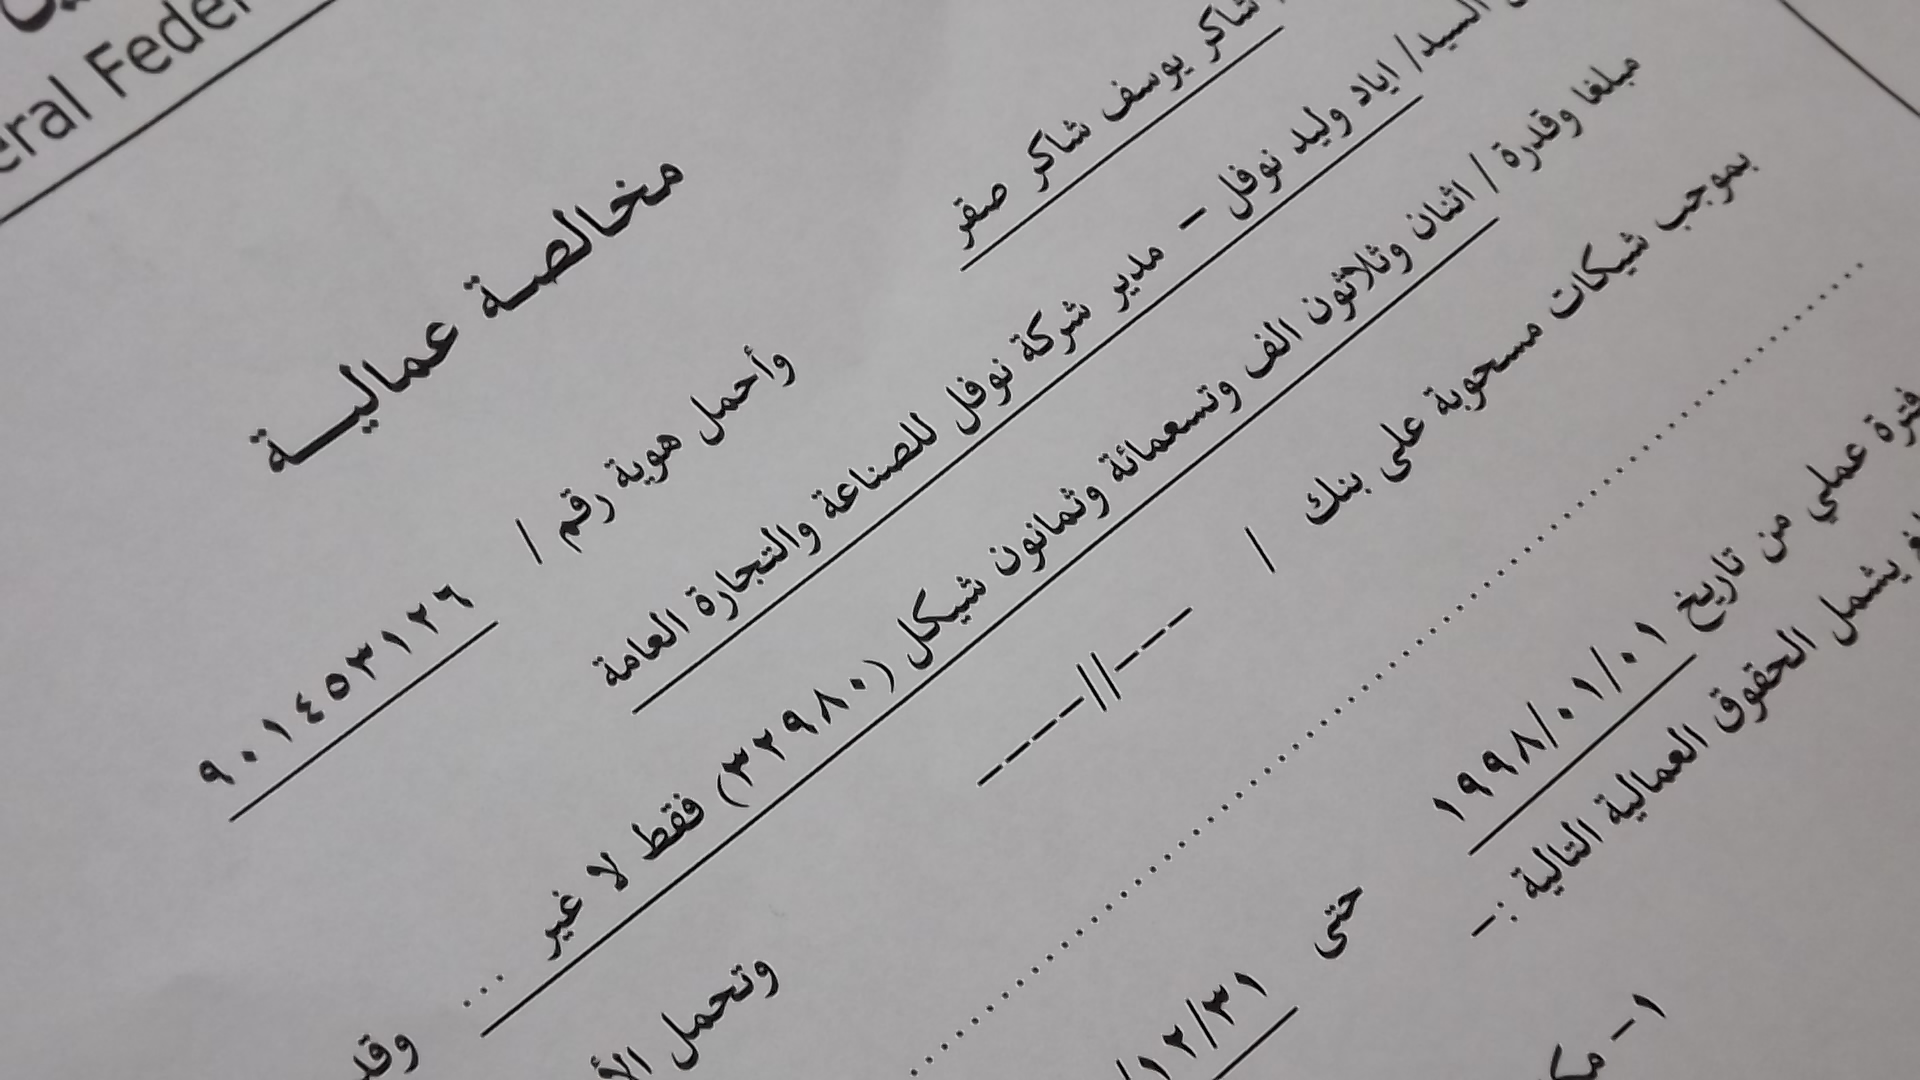 eral Feder
مخالصة عمالية
شاكر يوسف شاكر صقر وأحمل هوية رقم / ٩٠١٤٥٣١٢٦
السيد/ اياد وليد نوفل – مدير شركة نوفل للصناعة والتجارة العامة
مبلغا وقدرة / اثنان وثلاثون الف وتسعمائة وثمانون شيكل (٣٢٩٨٠) فقط لا غير ...
بموجب شيكات مسحوبة على بنك / ----//---- وتحمل
فترة عملي من تاريخ ١٩٩٨/٠١/٠١ حتى ١٢/٣١/
يشمل الحقوق العمالية التالية:-
١-